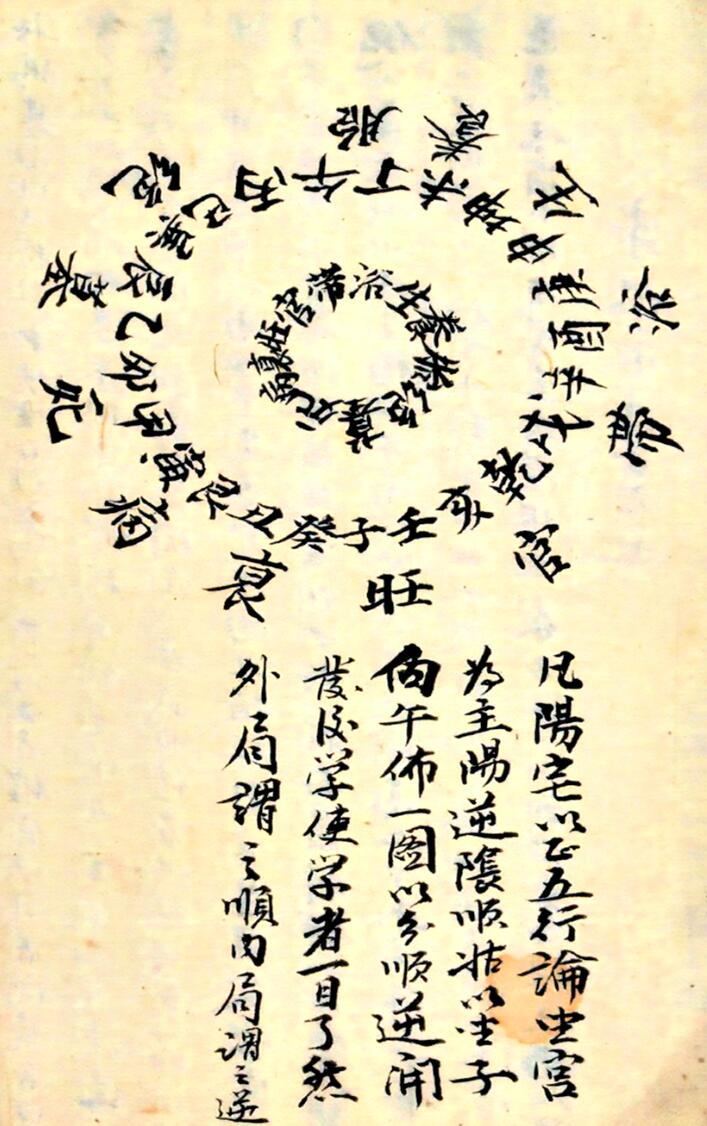 胎養生浴帶官旺衰病死墓絕
丙午丁未坤申庚酉辛戌乾亥壬子癸丑艮寅甲卯乙辰巽巳
帶浴生養胎絕墓死病衰旺官
凡陽宅以正五行論坐宮
為主陽逆陰順姑以坐子
向午佈一圖以分順逆開
發後学使学者一目了然
外局謂之順内局謂之逆